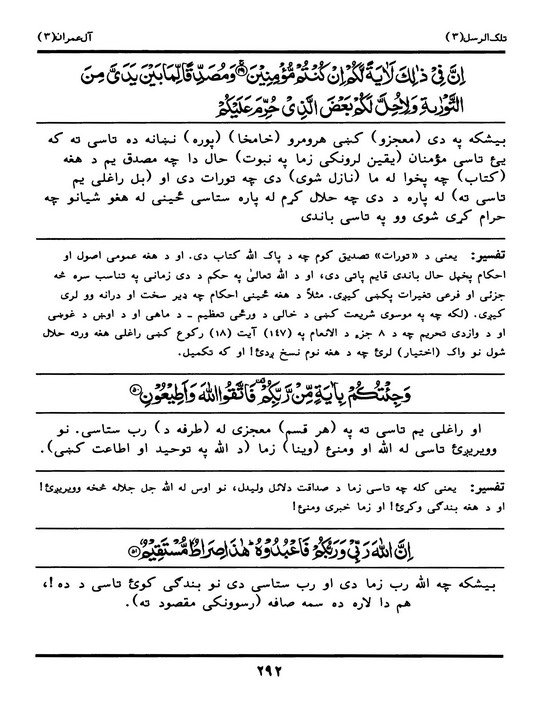 تلک الرسل (٣) آل عمران (٣)
اِنَّ فِیْ ذٰلِكَ لَاٰیَةً لَّكُمْ اِنْ كُنْتُمْ مُّؤْمِنِیْنَ ۴۹ وَمُصَدِّقًا لِّمَا بَیْنَ یَدَیَّ مِنَ
التَّوْرٰىةِ وَلِاُحِلَّ لَكُمْ بَعْضَ الَّذِیْ حُرِّمَ عَلَیْكُمْ
بیشکه په دی (معجزو) کښی هرومرو (خامخا) (پوره) نښانه ده تاسی ته که
یئ تاسی مؤمنان (یقین لرونکی زما په نبوت) حال دا چه مصدق یم د هغه
(کتاب) چه پخوا له ما (نازل شوی) دی چه تورات دی او (بل راغلی یم
تاسی ته) له پاره د دی چه حلال کړم له پاره ستاسی ځینی له هغو شیانو چه
حرام کړی شوی وو په تاسی باندی
تفسیر: یعنی د «تورات» تصدیق کوم چه د پاک الله کتاب دی. او د هغه عمومی اصول او
احکام پخپل حال باندی قایم پاتی دی، او د الله تعالیٰ په حکم د دی زمانی په تناسب سره څه
جزئی او فرعی تغیرات پکښی کیږی. مثلاً د هغه ځینی احکام چه ډیر سخت او درانه وو لری
کیږی. (لکه چه په موسوی شریعت کښی د خالی د ورځی تعظیم ـ د ماهی او د اوښ د غوښی
او د وازدی تحریم چه د ٨ جزء د الانعام په (١٤٧) آیت (١٨) رکوع کښی راغلی هغه ورته حلال
شول نو واک (اختیار) لرئ چه د هغه نوم نسخ ږدئ! او که تکمیل.
وَجِئْتُكُمْ بِاٰیَةٍ مِّنْ رَّبِّكُمْ فَاتَّقُوا اللّٰهَ وَاَطِیْعُوْنِ ۵۰
او راغلی یم تاسی ته په (هر قسم) معجزی له (طرفه د) رب ستاسی. نو
وویریږئ تاسی له الله او ومنئ (وینا) زما (د الله په توحید او اطاعت کښی).
تفسیر: یعنی کله چه تاسی زما د صداقت دلائل ولیدل، نو اوس له الله جل جلاله څخه وویریږئ!
او د هغه بندگی وکړئ! او زما خبری ومنئ!
اِنَّ اللّٰهَ رَبِّیْ وَرَبُّكُمْ فَاعْبُدُوْهُ هٰذَا صِرَاطٌ مُّسْتَقِیْمٌ ۵۱
بیشکه چه الله رب زما دی او رب ستاسی دی نو بندگی کوئ تاسی د ده!،
هم دا لاره ده سمه صافه (رسوونکی مقصود ته).
٢٩٢